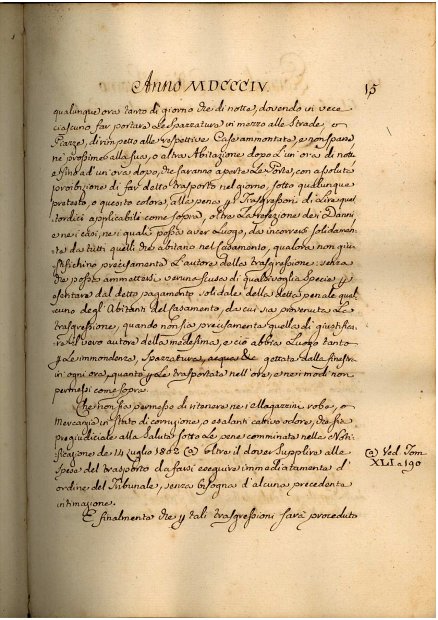 Anno MDCCCIV.
15
qualunque ora tanto di giorno che di notte, dovendo in vece
ciascuno far portare le Spazzature in mezzo alle Strade, o
Piazze, dirimpetto alle respettive Case ammontate, e non sparse,
nè prossime alla sua, o altra Abitazione dopo un'ora di notte
e fino ad un'ora dopo, che saranno aperte le Porte, con assoluta
proibizione di far detto trasporto nel giorno, sotto qualunque
pretesto, o quesito colore, alla pena p. i Trasgressori di Lire quat-
tordici applicabili come sopra, oltre la refezione dei Danni,
e nei casi, nei quali possa aver luogo, da incorrersi solidamen-
te da tutti quelli che abitano nel Casamento, qualora non giu-
stifichino precisamente l'autore della trasgressione: senza
che possa ammettersi veruna scusa di qualsivoglia Specie p.
esentare dal detto pagamento solidale della detta penale qual-
cuno degl'Abitanti del Casamento, da cui sia provenuta la
trasgressione, quando non sia precisamente quella di giustifica-
re il vero autore della medesima, e ciò abbia luogo tanto
p. le immondezze, Spazzature, acqua &c gettata dalle finestre
in ogni ora, quanto p. le trasportate nell'ore, e nei modi non
permessi come sopra.
Che non sia permesso di ritenere nei Magazzini robe, o
Mercanzie in stato di corruzione, o esalanti cattivo odore, che sia
pregiudiciale alla Salute sotto le pene comminate nella Noti-
ficazione de 14 luglio 1802 (a) Oltre il dover Supplire alle
Spese del trasporto da farsi eseguire immediatamente d'
ordine del Tribunale, senza bisogno d'alcuna precedente
intimazione.
E finalmente che p. tali trasgressioni sarà proceduto
(a) Ved. Tom.
XLI a 190